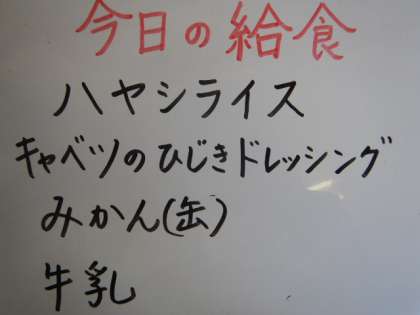 今日の給食
ハヤシライス
キャベツのひじきドレッシング
みかん(缶)
牛乳